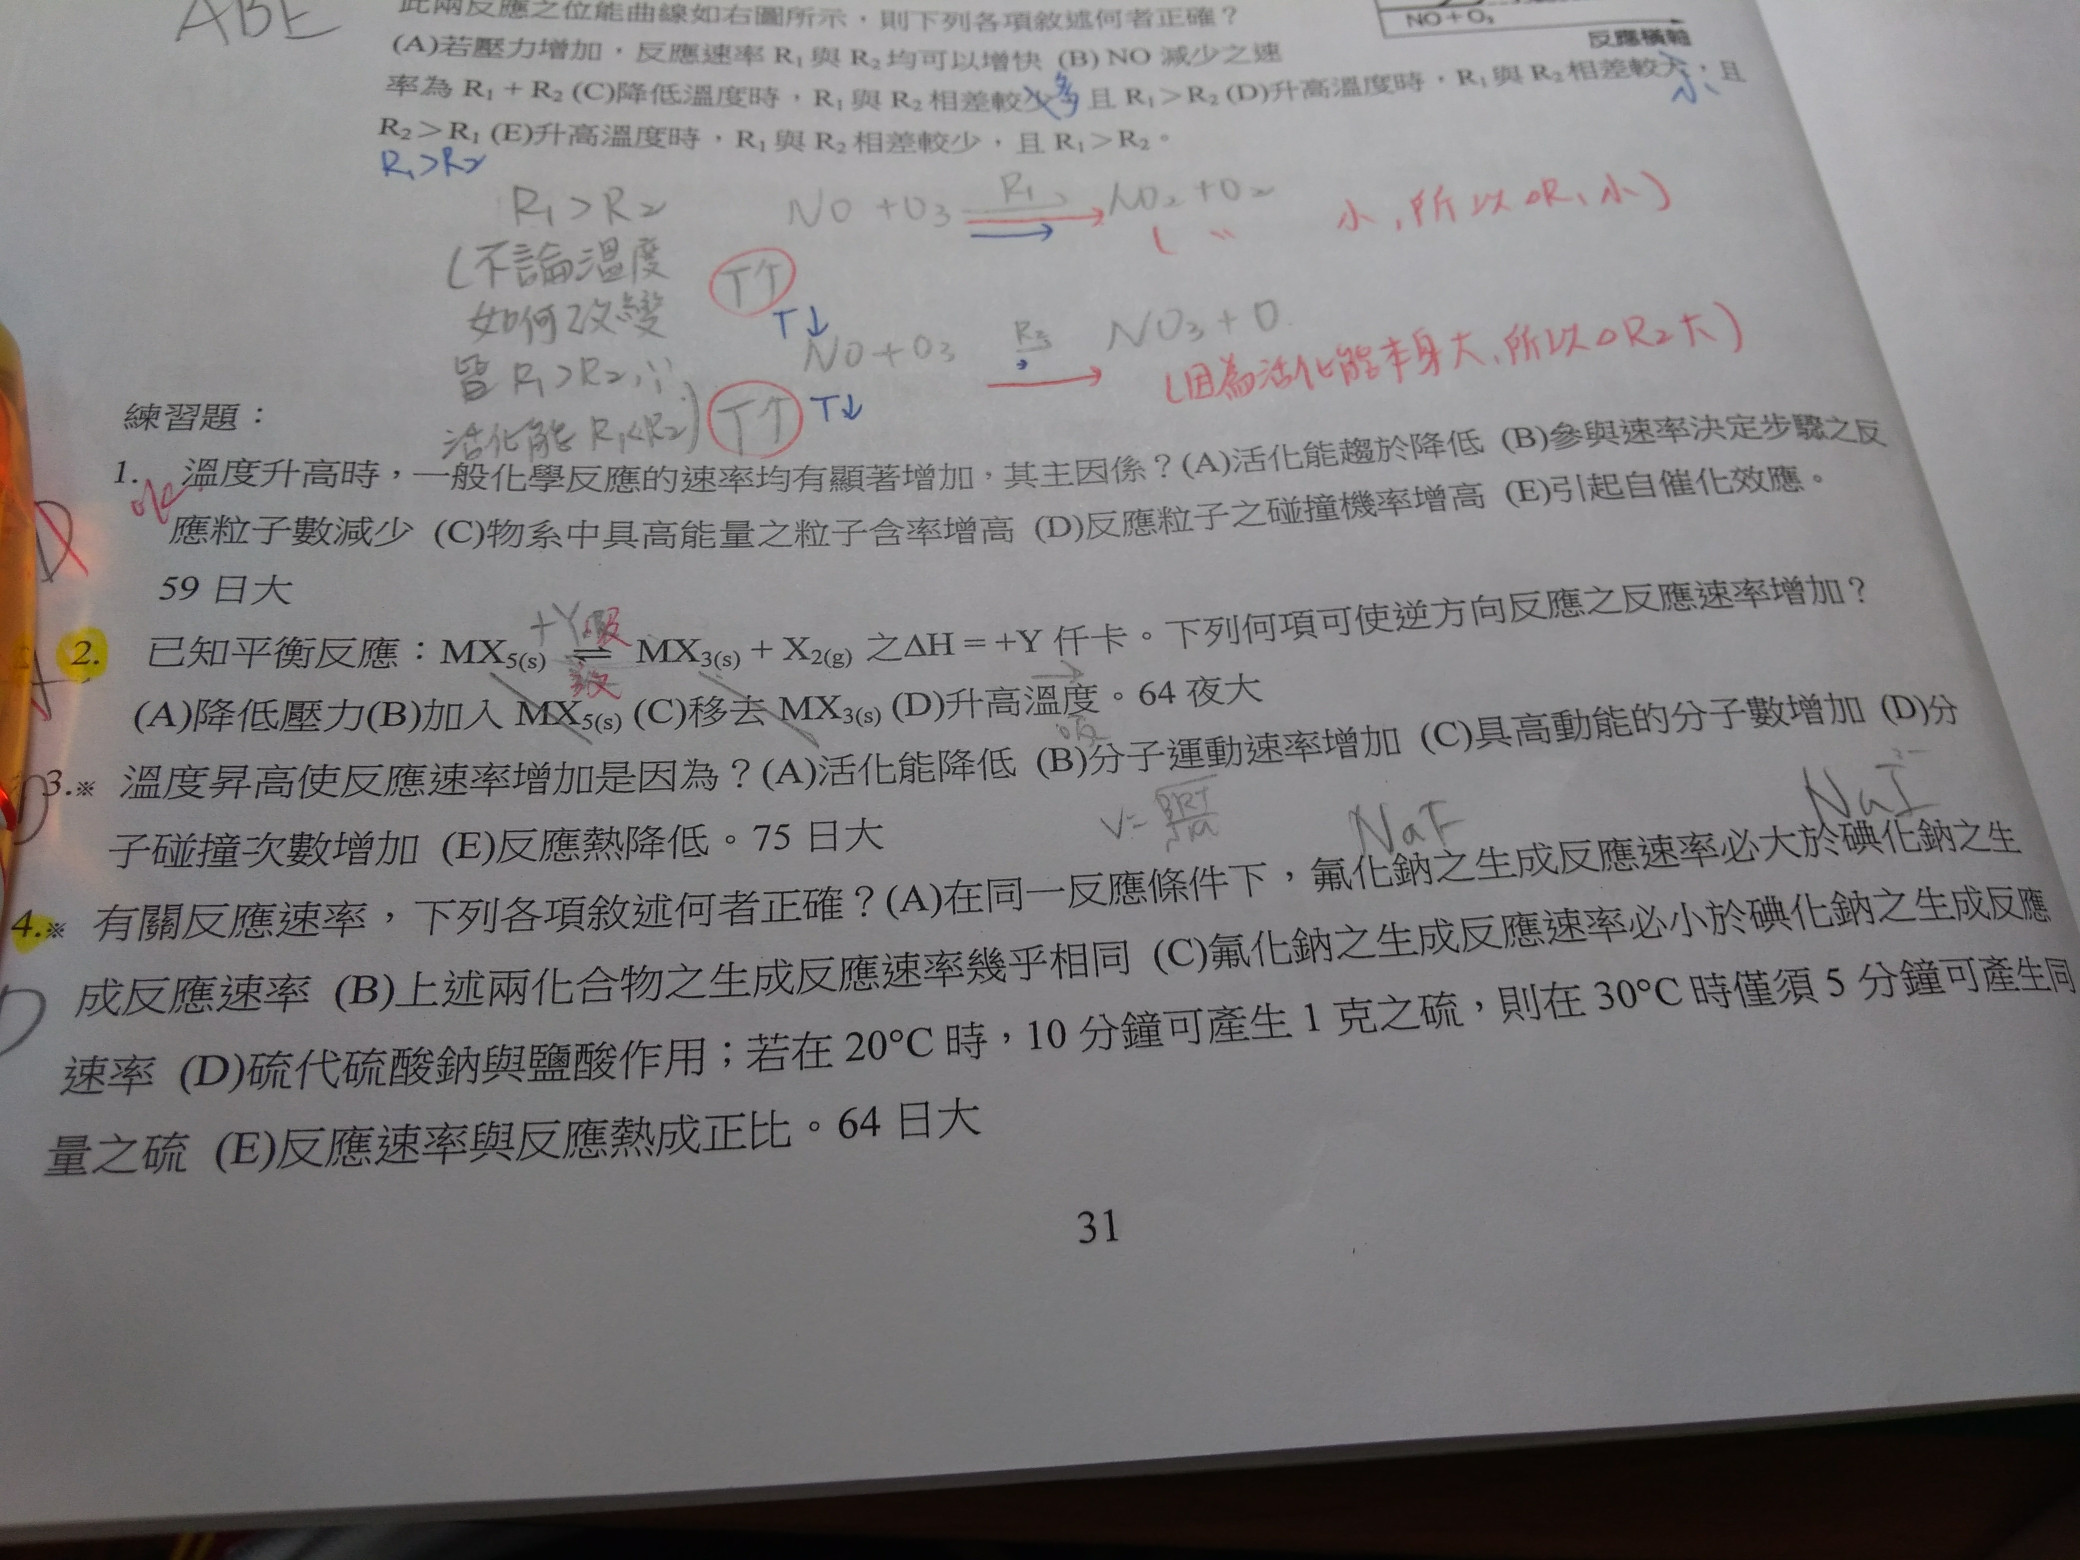 ABE
此兩反應之位能曲線如右圖所示，則下列各項敘述何者正確？
NO + O₃
反應橫軸
(A)若壓力增加，反應速率 R₁ 與 R₂ 均可以增快 (B) NO 減少之速
率為 R₁ + R₂ (C)降低溫度時，R₁ 與 R₂ 相差較少 多 且 R₁＞R₂ (D)升高溫度時，R₁ 與 R₂ 相差較大，且
小
R₂＞R₁ (E)升高溫度時，R₁ 與 R₂ 相差較少，且 R₁＞R₂。
R₁>R₂
R₁ > R₂
NO + O₃ R₁ NO₂ + O₂
小，所以△R₁小)
(不論溫度
T↑
如何改變
T↓
NO + O₃ NO₃ + O
皆 R₁>R₂，∵
(因為活化能本身大，所以△R₂大)
活化能 R₁<R₂)
T↑ T↓
練習題：
1. 溫度升高時，一般化學反應的速率均有顯著增加，其主因係？(A)活化能趨於降低 (B)參與速率決定步驟之反
應粒子數減少 (C)物系中具高能量之粒子含率增高 (D)反應粒子之碰撞機率增高 (E)引起自催化效應。
D
59 日大
+Y 吸
2. 已知平衡反應：MX₅₍ₛ₎ ⇌ MX₃₍ₛ₎ + X₂₍g₎ 之ΔH = +Y 仟卡。下列何項可使逆方向反應之反應速率增加？
(A)降低壓力(B)加入 MX₅₍ₛ₎ (C)移去 MX₃₍ₛ₎ (D)升高溫度。64 夜大
吸
3.※ 溫度昇高使反應速率增加是因為？(A)活化能降低 (B)分子運動速率增加 (C)具高動能的分子數增加 (D)分
D
子碰撞次數增加 (E)反應熱降低。75 日大
NaF
NaI
4.※ 有關反應速率，下列各項敘述何者正確？(A)在同一反應條件下，氟化鈉之生成反應速率必大於碘化鈉之生
成反應速率 (B)上述兩化合物之生成反應速率幾乎相同 (C)氟化鈉之生成反應速率必小於碘化鈉之生成反應
D
速率 (D)硫代硫酸鈉與鹽酸作用；若在 20°C 時，10 分鐘可產生 1 克之硫，則在 30°C 時僅須 5 分鐘可產生同
量之硫 (E)反應速率與反應熱成正比。64 日大
31